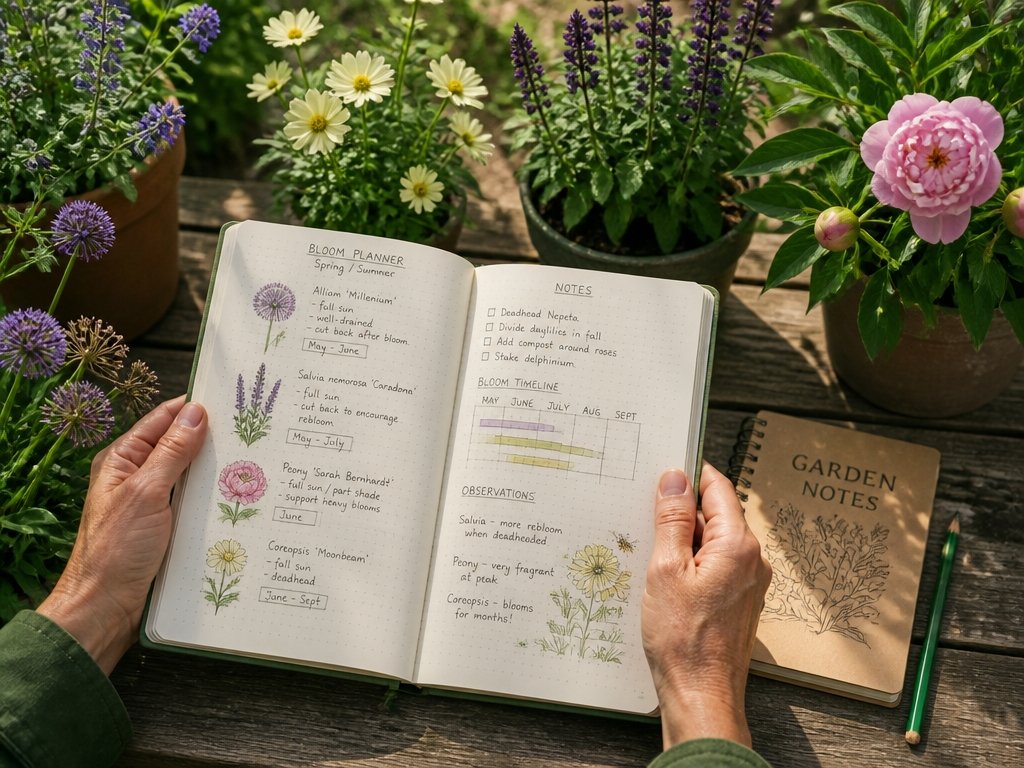 BLOOM PLANNER
Spring / Summer
Allium 'Millenium'
- full sun
- well-drained
- cut back after bloom
May - June
Salvia nemorosa 'Caradona'
- full sun
- cut back to encourage
rebloom
May - July
Peony 'Sarah Bernhardt'
- full sun / part shade
- support heavy blooms
June
Coreopsis 'Moonbeam'
- full sun
- deadhead
June - Sept
NOTES
☐ Deadhead Nepeta
☐ Divide daylilies in fall
☐ Add compost around roses
☐ Stake delphinium
BLOOM TIMELINE
MAY JUNE JULY AUG SEPT
OBSERVATIONS
Salvia - more rebloom
when deadheaded
Peony - very fragrant
at peak
Coreopsis - blooms
for months!
GARDEN
NOTES